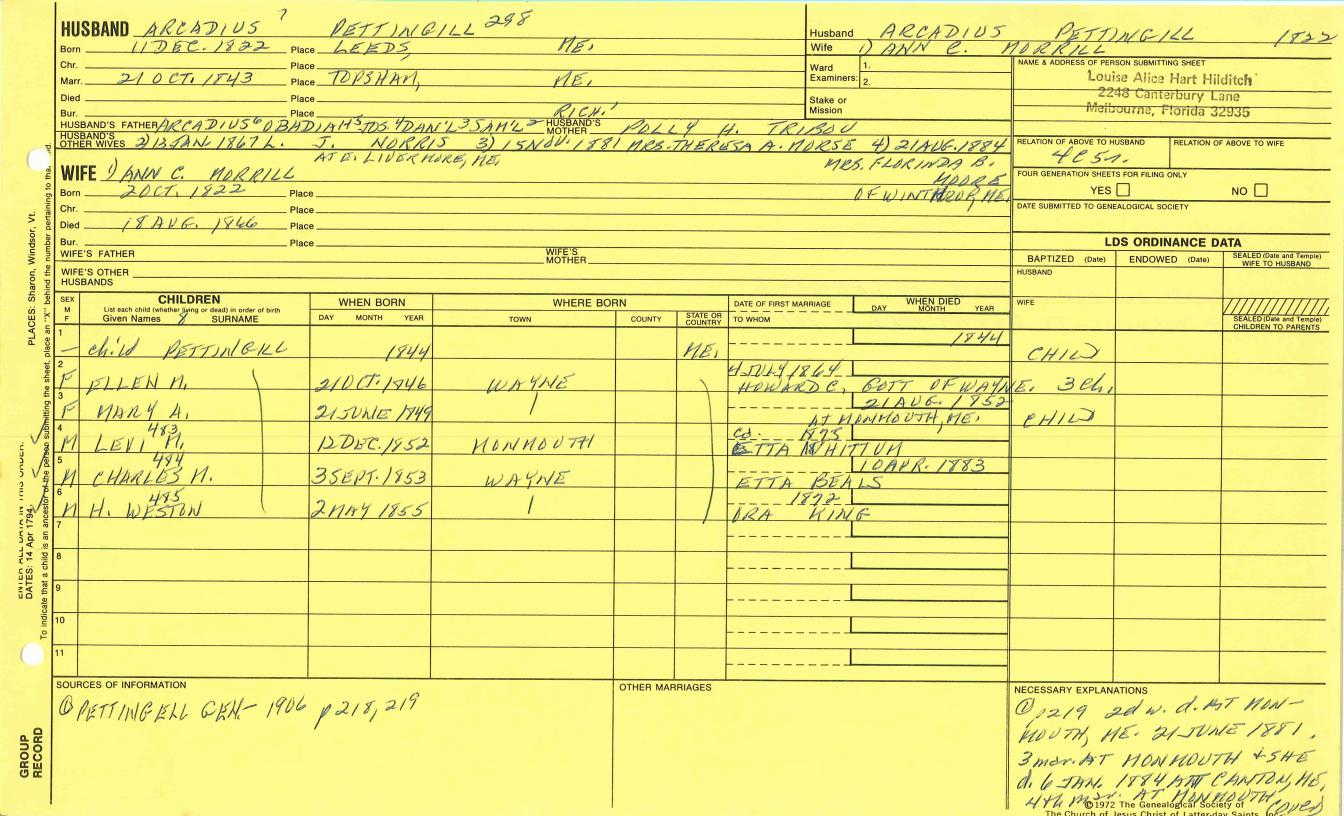 HUSBAND ARCADIUS 7 PETTINGILL 298
Born 11 DEC. 1822 Place LEEDS, ME.
Chr. Place
Marr. 21 OCT. 1843 Place TOPSHAM, ME.
Died Place
Bur. Place
RICH.1
HUSBAND'S FATHER ARCADIUS 6 OBADIAH 5 JOS 4 DAN'L 3 SAM'L 2 HUSBAND'S MOTHER POLLY H. TRIBOU
HUSBAND'S OTHER WIVES 2) 13 JAN. 1867 L. J. NORRIS 3) 15 NOV. 1881 MRS. THERESA A. MORSE 4) 21 AUG. 1884
AT E. LIVERMORE, ME. MRS. FLORINDA B.
MOORE
OF WINTHROP, ME.
WIFE 1) ANN C. MORRILL
Born 2 OCT. 1822 Place
Chr. Place
Died 18 AUG. 1866 Place
Bur. Place
WIFE'S FATHER WIFE'S MOTHER
WIFE'S OTHER HUSBANDS
Husband ARCADIUS PETTINGILL 1822
Wife 1) ANN C. MORRILL
Ward Examiners: 1.
2.
Stake or Mission
NAME & ADDRESS OF PERSON SUBMITTING SHEET
Louise Alice Hart Hilditch
2248 Canterbury Lane
Melbourne, Florida 32935
RELATION OF ABOVE TO HUSBAND RELATION OF ABOVE TO WIFE
4C5r.
FOUR GENERATION SHEETS FOR FILING ONLY
YES NO
DATE SUBMITTED TO GENEALOGICAL SOCIETY
LDS ORDINANCE DATA
BAPTIZED (Date) ENDOWED (Date) SEALED (Date and Temple) WIFE TO HUSBAND
HUSBAND
WIFE
SEALED (Date and Temple) CHILDREN TO PARENTS
SEX M F
CHILDREN
List each child (whether living or dead) in order of birth
Given Names 8 SURNAME
WHEN BORN
DAY MONTH YEAR
WHERE BORN
TOWN COUNTY STATE OR COUNTRY
DATE OF FIRST MARRIAGE
TO WHOM
WHEN DIED
DAY MONTH YEAR
1 — child PETTINGILL 1844 ME. 1844 CHILD
2 F ELLEN M. 21 OCT. 1846 WAYNE 4 JULY 1864
HOWARD C. GOTT OF WAYNE. 3 ch.
3 F MARY A. 21 JUNE 1849 21 AUG. 1852
AT MONMOUTH, ME. CHILD
4 M LEVI M. 483 12 DEC. 1852 MONMOUTH cd. 1875
ETTA WHITTUM
5 M CHARLES M. 484 3 SEPT. 1853 WAYNE 10 APR. 1883
ETTA BEALS
6 M H. WESTON 485 2 MAY 1855 1872
ORA KING
7
8
9
10
11
SOURCES OF INFORMATION
① PETTINGELL GEN- 1906 p 218, 219
OTHER MARRIAGES
NECESSARY EXPLANATIONS
① p219 2d w. d. AT MON-
MOUTH, ME. 21 JUNE 1881.
3 mar. AT MONMOUTH + SHE
d. 6 JAN. 1884 AT CANTON, ME,
4th mar. AT MONMOUTH
(over)
©1972 The Genealogical Society of
The Church of Jesus Christ of Latter-day Saints, Inc.
PLACES: Sharon, Windsor, Vt.
ENTER ALL DATA IN THIS ORDER:
DATES: 14 Apr 1794
To indicate that a child is an ancestor of the person submitting the sheet, place an "X" behind the number pertaining to
GROUP RECORD